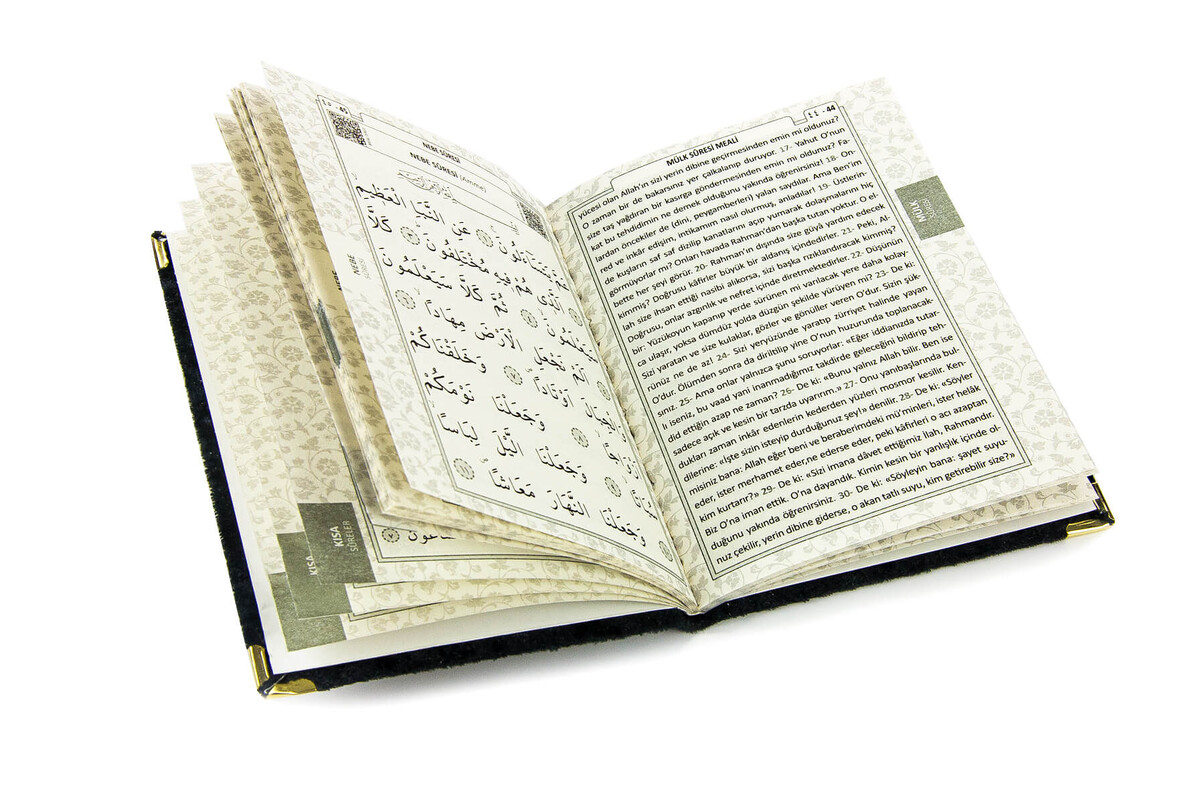 ٤٤ - 44
MÜLK SÛRESİ MEALİ
yücesi olan Allah'ın sizi yerin dibine geçirmesinden emin mi oldunuz?
O zaman bir de bakarsınız yer çalkalanıp duruyor. 17- Yahut O'nun
size taş yağdıran bir kasırga göndermesinden emin mi oldunuz? Fa-
kat bu tehdidimin ne demek olduğunu yakında öğrenirsiniz! 18- On-
lardan öncekiler de (dini, peygamberleri) yalan saydılar. Ama Ben'im
red ve inkâr edişim, intikamım nasıl olurmuş, anladılar! 19- Üstlerin-
de kuşların saf saf dizilip kanatlarını açıp yumarak dolaşmalarını hiç
görmüyorlar mı? Onları havada Rahman'dan başka tutan yoktur. O el-
bette her şeyi görür. 20- Rahman'ın dışında size gûyâ yardım edecek
kimmiş? Doğrusu kâfirler büyük bir aldanış içindedirler. 21- Peki, Al-
lah size ihsan ettiği nasibi alıkorsa, sizi başka rızıklandıracak kimmiş?
Doğrusu, onlar azgınlık ve nefret içinde diretmektedirler. 22- Düşünün
bir: Yüzükoyun kapanıp yerde sürünen mi varılacak yere daha kolay-
ca ulaşır, yoksa dümdüz yolda düzgün şekilde yürüyen mi? 23- De ki:
Sizi yaratan ve size kulaklar, gözler ve gönüller veren O'dur. Sizin şük-
rünüz ne de az! 24- Sizi yeryüzünde yaratıp zürriyet halinde yayan
O'dur. Ölümden sonra da diriltilip yine O'nun huzurunda toplanacak-
sınız. 25- Ama onlar yalnızca şunu soruyorlar: «Eğer iddianızda tutar-
lı iseniz, bu vaad yani inanmadığımız takdirde geleceğini bildirip teh-
did ettiğin azap ne zaman? 26- De ki: «Bunu yalnız Allah bilir. Ben ise
sadece açık ve kesin bir tarzda uyarırım.» 27- Onu yanıbaşlarında bul-
dukları zaman inkâr edenlerin kederden yüzleri mosmor kesilir. Ken-
dilerine: «İşte sizin isteyip durduğunuz şey!» denilir. 28- De ki: «Söyler
misiniz bana: Allah eğer beni ve beraberimdeki mü'minleri, ister helâk
eder, ister merhamet eder,ne ederse eder, peki kâfirleri o acı azaptan
kim kurtarır?» 29- De ki: «Sizi imana dâvet ettiğimiz ilah, Rahmandır.
Biz O'na iman ettik. O'na dayandık. Kimin kesin bir yanlışlık içinde ol-
duğunu yakında öğrenirsiniz. 30- De ki: «Söyleyin bana: şayet suyu-
nuz çekilir, yerin dibine giderse, o akan tatlı suyu, kim getirebilir size?»
MÜLK
SÛRESİ
٤٥ - 45
NEBE SÛRESİ
NEBE SÛRESİ (Amme)
عَمَّ يَتَسَاءَلُونَ ﴿١﴾ عَنِ النَّبَأِ الْعَظِيمِ
الَّذِي هُمْ فِيهِ مُخْتَلِفُونَ ﴿٣﴾ كَلَّا
سَيَعْلَمُونَ ﴿٤﴾ ثُمَّ كَلَّا سَيَعْلَمُونَ
أَلَمْ نَجْعَلِ الْأَرْضَ مِهَادًا ﴿٦﴾
وَالْجِبَالَ أَوْتَادًا ﴿٧﴾ وَخَلَقْنَاكُمْ
أَزْوَاجًا ﴿٨﴾ وَجَعَلْنَا نَوْمَكُمْ
سُبَاتًا ﴿٩﴾ وَجَعَلْنَا اللَّيْلَ لِبَاسًا
﴿١٠﴾ وَجَعَلْنَا النَّهَارَ مَعَاشًا
NEBE
KISA
SÛRELER
KISA